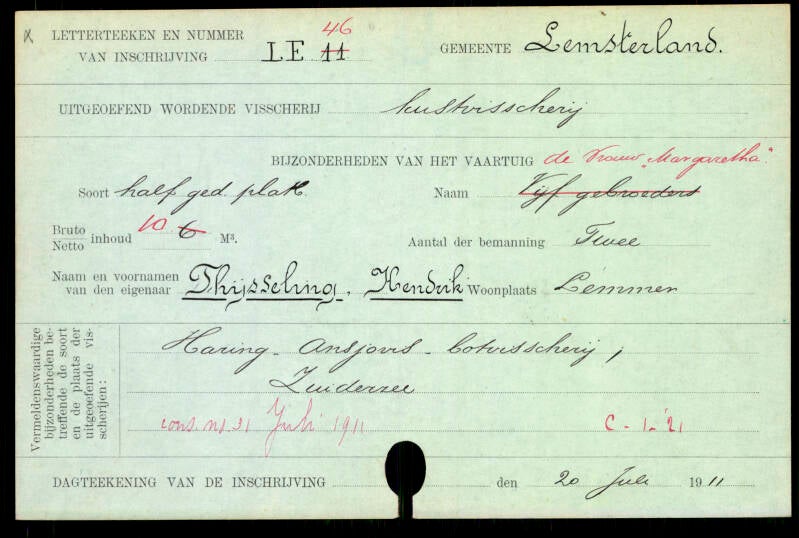 x LETTERTEEKEN EN NUMMER 46
VAN INSCHRIJVING LE 11 GEMEENTE Lemsterland.
UITGEOEFEND WORDENDE VISSCHERIJ kustvisscherij
BIJZONDERHEDEN VAN HET VAARTUIG de Vrouw „Margaretha".
Soort half ged. plat Naam Vijf gebroeders
Bruto
Netto inhoud 10 6 M³. Aantal der bemanning Twee
Naam en voornamen
van den eigenaar Thijsseling, Hendrik Woonplaats Lemmer
Vermeldenswaardige
bijzonderheden be-
treffende de soort
en de plaats der
uitgeoefende vis-
scherijen:
Haring- Ansjovis- botvisscherij,
Zuiderzee
31 Juli 1911 C - 1 - '21
DAGTEEKENING VAN DE INSCHRIJVING den 20 Juli 1911